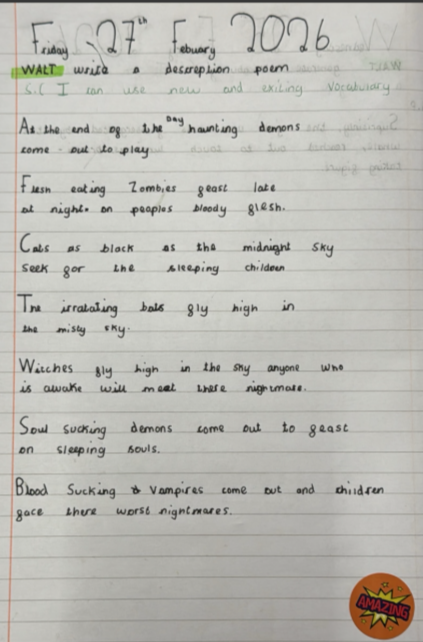 Friday 27th Febuary 2026
WALT write a descreption poem
S.C I can use new and exiting vocabulary
As the end of the Day haunting demons
come out to play
Flesh eating Zombies feast late
at night on peoples bloody flesh.
Cats as black as the midnight sky
seek for the sleeping children
The irratating bats fly high in
the misty sky.
Witches fly high in the sky anyone who
is awake will meet there nightmare.
Soul sucking demons come out to feast
on sleeping souls.
Blood Sucking Vampires come out and children
face there worst nightmares.
AMAZING